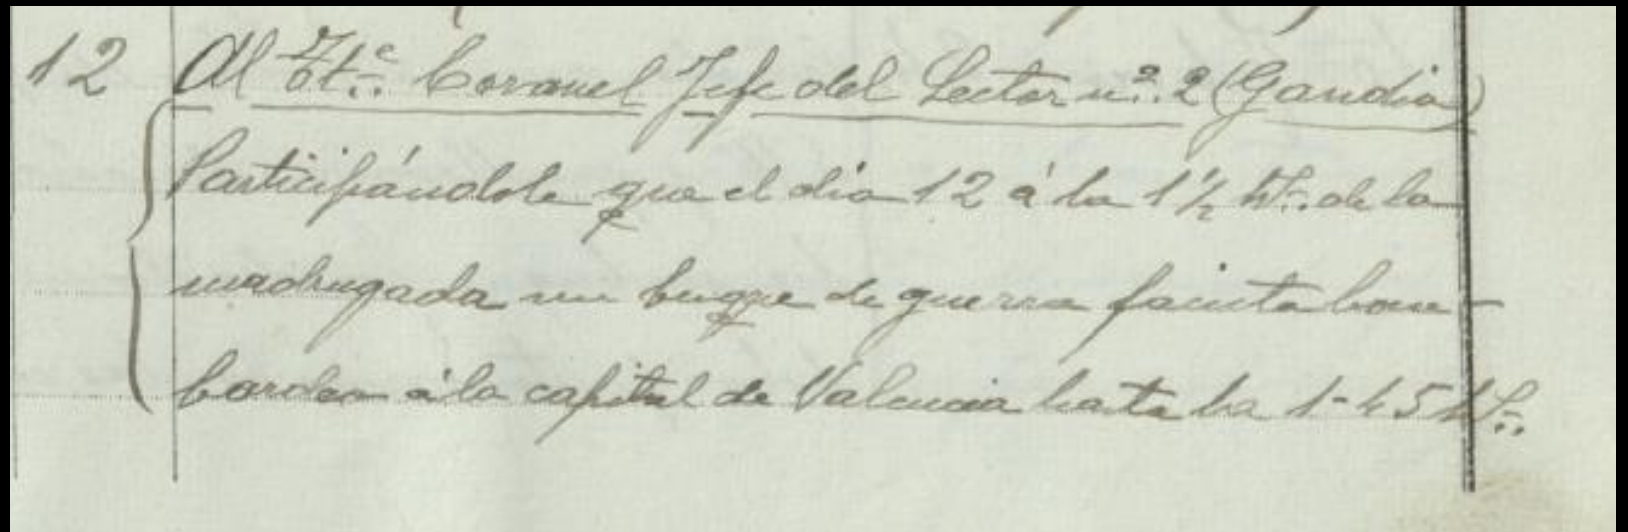 12 Al Tte. Coronel Jefe del Sector nº. 2 (Gandia)
Participándole que el día 12 á la 1 ½ hs. de la
madrugada un buque de guerra facista bom-
bardea á la capital de Valencia hasta la 1-45 hs.